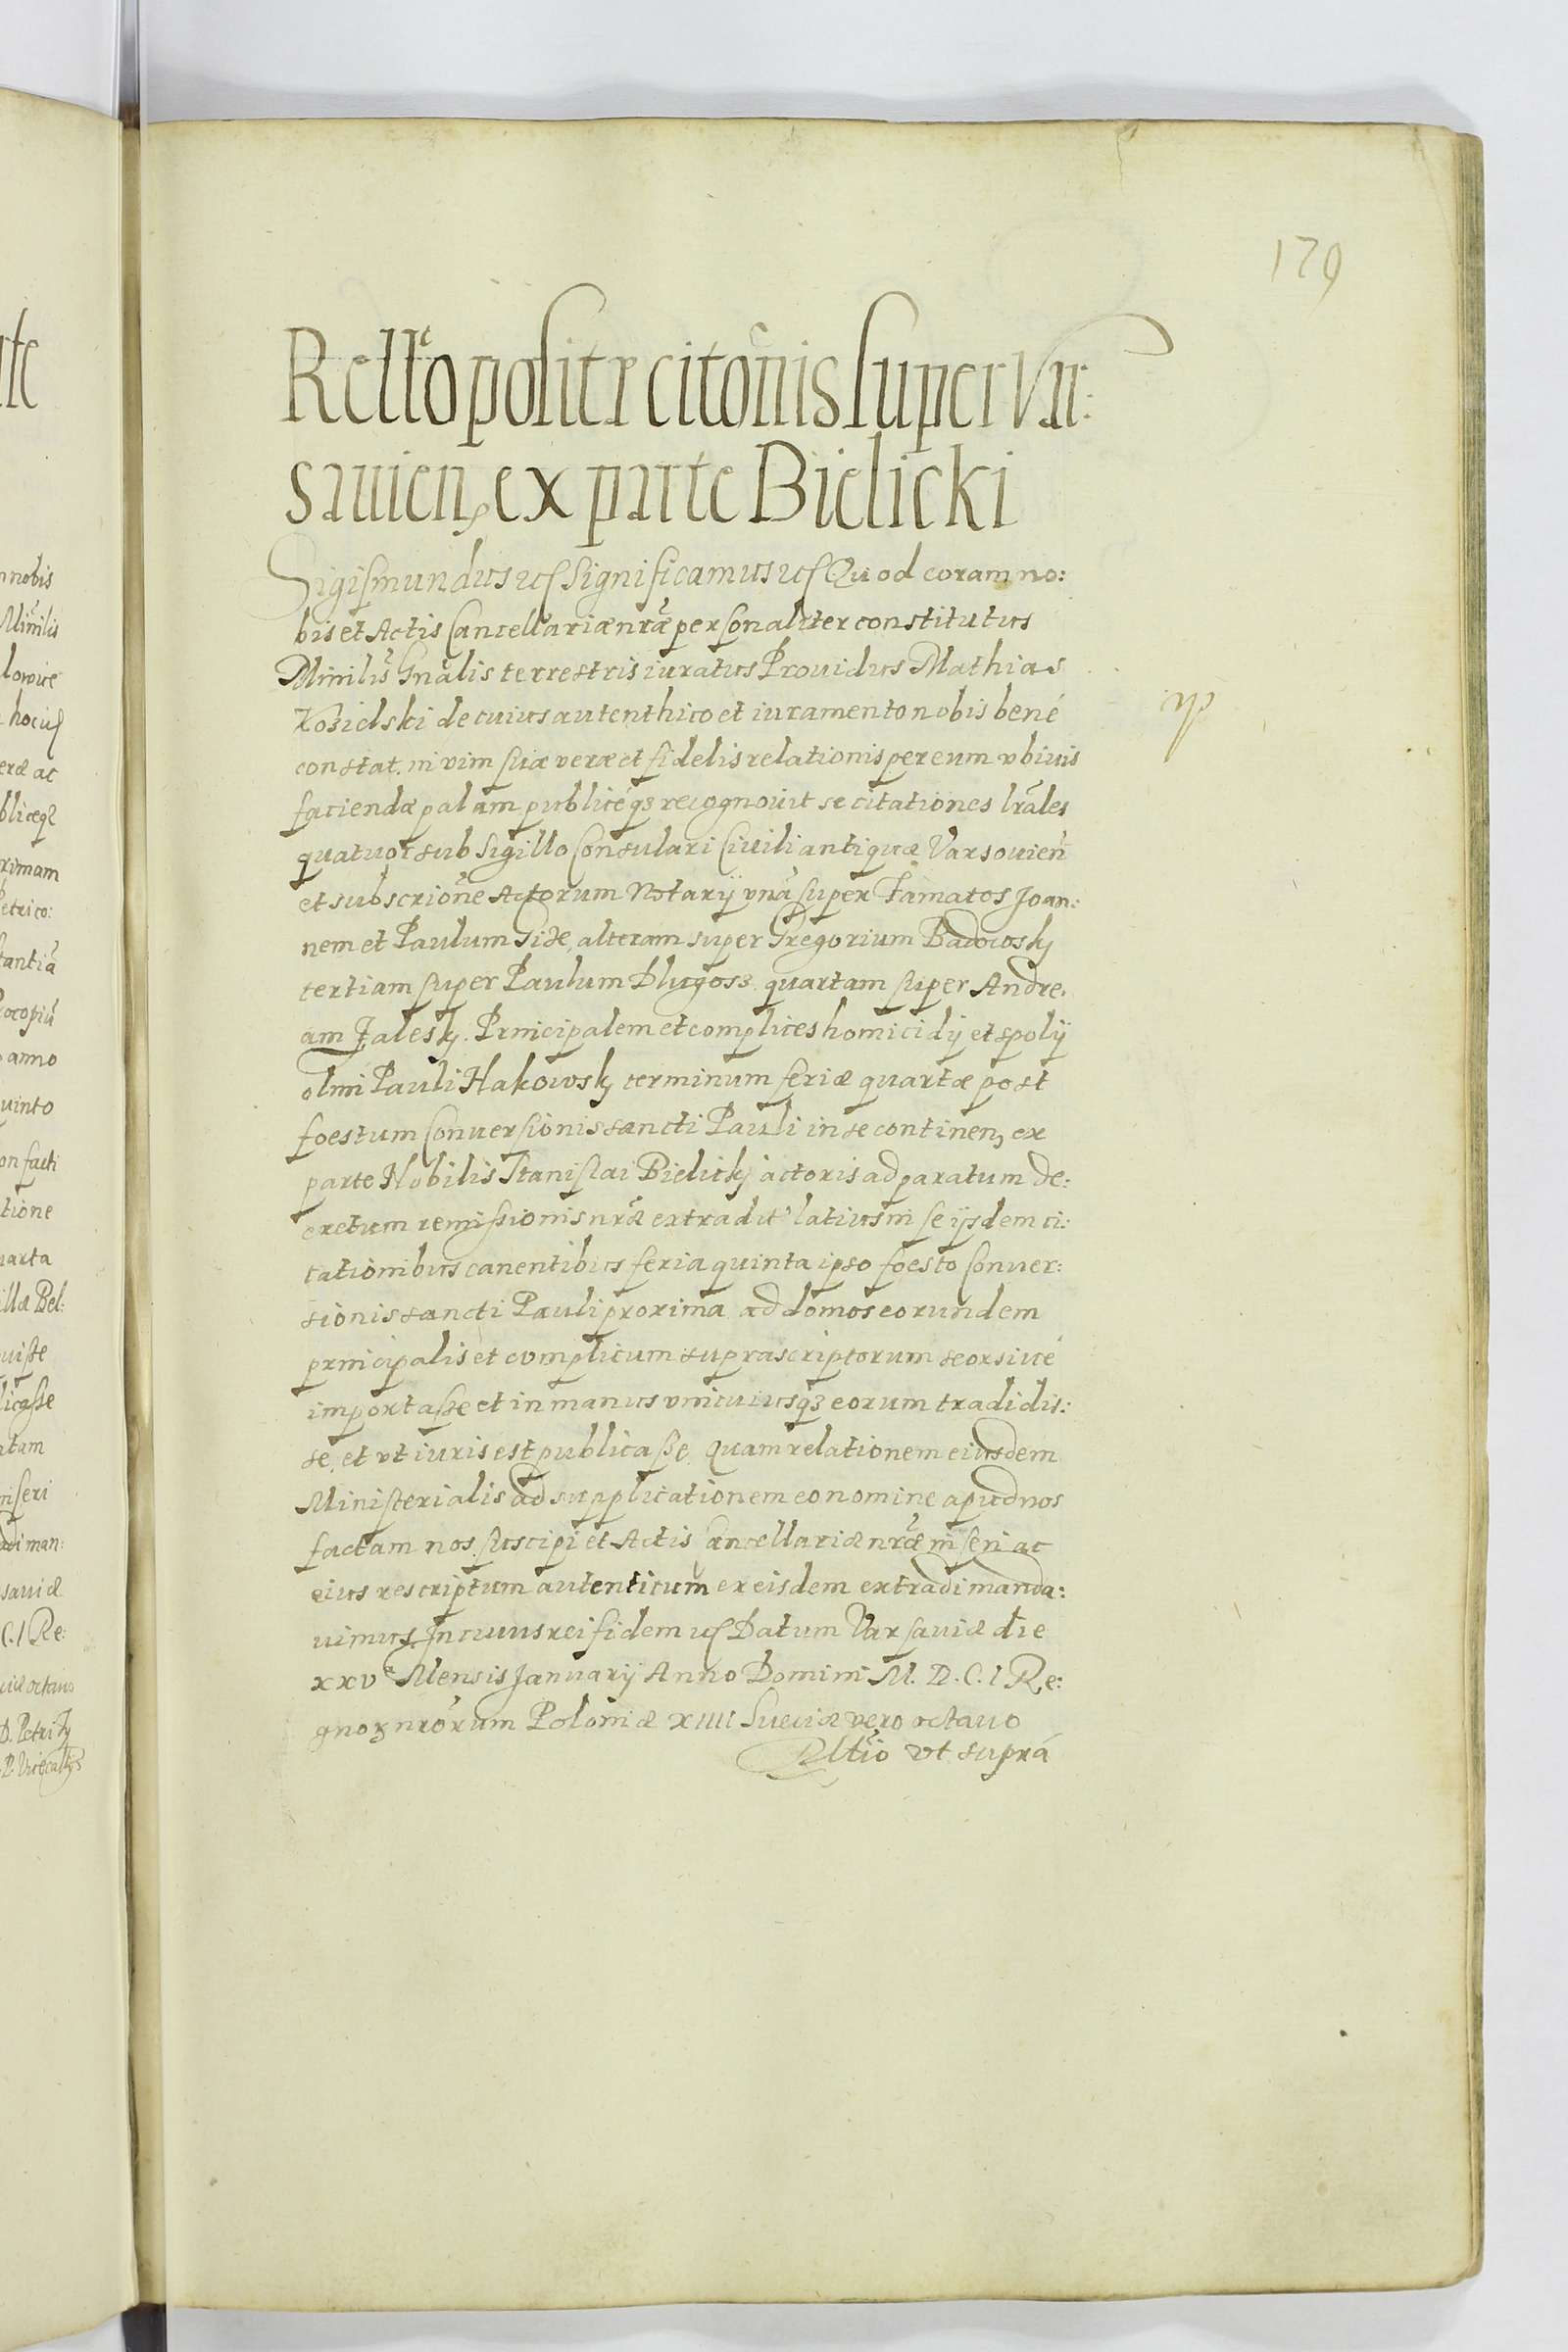 179
Relltõ positæ citõnis super Var:
sauien, ex parte Bielicki
Sigismundus etc Significamus etc Quod coram no:
bis et Actis Cancellariæ nræ personaliter constitutus
Minilis Gnalis terrestris iuratus Prouidus Mathias
Kozielski de cuius autenthico et iuramento nobis bené
constat. in vim suæ veræ et fidelis relationis per eum vbiuis
faciendæ palam publicéqz recognouit se citationes lrales
quatuor sub Sigillo Consulari Ciuili antiquæ Varsouien
et subscrione Actorum Notarij vnã super Famatos Joan:
nem et Paulum Gize, alteram super Gregorium Badowsky
tertiam super Paulum Dlugosz quartam super Andre,
am Zalesky. Principalem et complices homicidij et spolij
olim Pauli Hakowsky terminum feriæ quartæ post
foestum Conuersionis sancti Pauli in se continen, ex
parte Nobilis Stanislai Bielicky actoris ad paratum de:
cretum remissionis nræ extradit' latius in se ijsdem ci:
tationibus canentibus feria quinta ipso foesto Conuer:
sionis sancti Pauli proxima ad domos eorundem
principalis et complicum suprascriptorum seorsiué
importasse et in manus vniuiusqz eorum tradidis:
se, et vt iuris est publicasse. Quam relationem eiusdem
Ministerialis ad supplicationem eo nomine apud nos
factam nos suscipi et Actis Cancellariæ nræ inseri ac
eius rescriptum autenticum ex eisdem extradi manda:
uimus. In cuius rei fidem etc Datum Varsauiæ die
xxv ᵃ Mensis Januarij Anno Domini M. D. C. I Re:
gnoz nrorum Poloniæ xiiii Sueciæ vero octauo
Rltio vt suprá